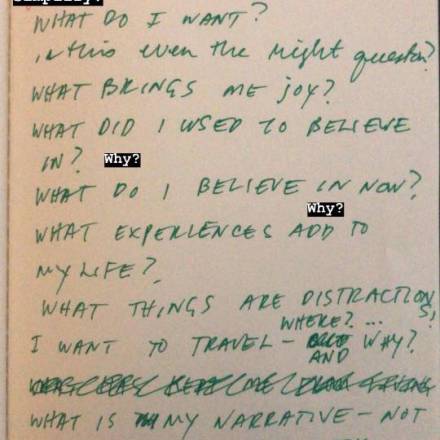 WHAT DO I WANT?
is this even the right question?
WHAT BRINGS ME JOY?
WHAT DID I USED TO BELIEVE
IN? Why?
WHAT DO I BELIEVE IN NOW?
Why?
WHAT EXPERIENCES ADD TO
MY LIFE?
WHAT THINGS ARE DISTRACTIONS!
WHERE? ...
I WANT TO TRAVEL - WHY?
AND
WHAT IS MY NARRATIVE - NOT